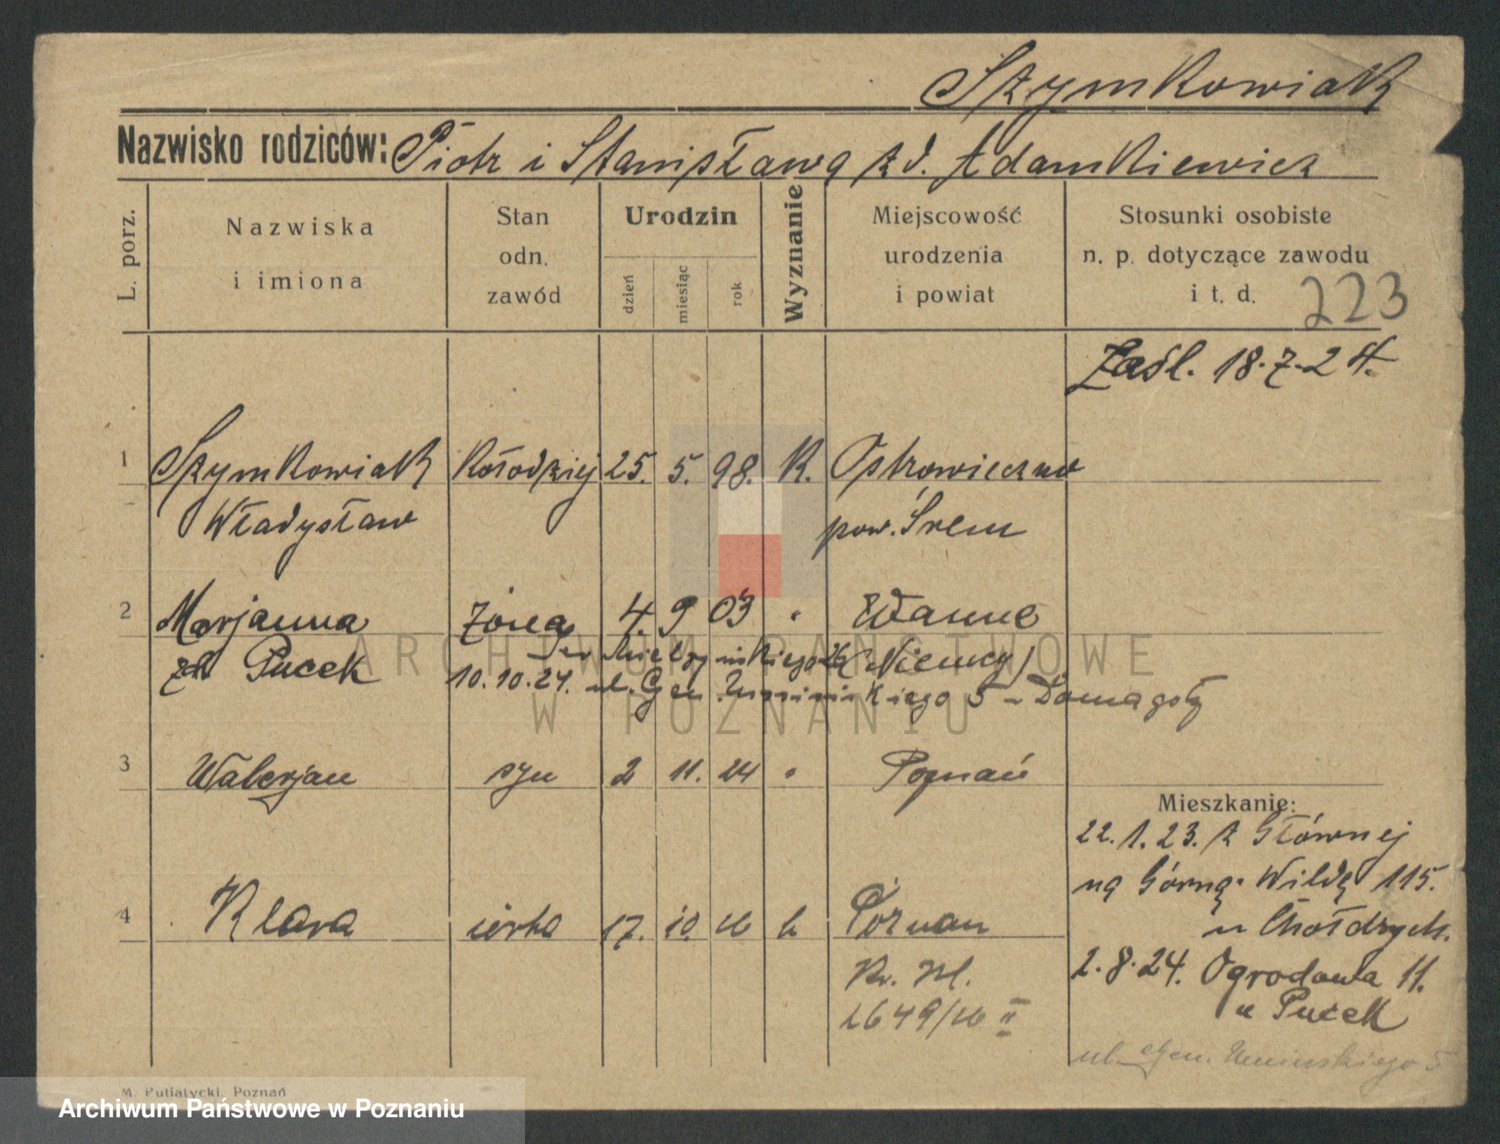 Szymkowiak
Nazwisko rodziców: Piotr i Stanisława zd. Adamkiewicz
L. porz.
Nazwiska
i imiona
Stan
odn.
zawód
Urodzin
dzień
miesiąc
rok
Wyznanie
Miejscowość
urodzenia
i powiat
Stosunki osobiste
n. p. dotyczące zawodu
i t. d.
223
Zaśl. 18.7.24.
1 Szymkowiak Kołodziej 25. 5. 98. K. Ostrowieczno
Władysław pow. Śrem
2 Marjanna żona 4. 9 03 " Wanne
zd. Pucek (Niemcy)
Mielżyńskiego 26
10.10.24. ul. Gen. Umińskiego 5 - Domagały
3 Walerjan syn 2 11. 24 " Poznań
Mieszkanie:
22.1.23. z Głównej
na Górną Wildę 115.
u Chołdrych.
4 Klara córka 17. 10. 26 k Poznań
2.8.24. Ogrodowa 11.
u Pucek
Kr. Ml.
1649/26 II
ul. Gen. Umińskiego 5
M. Putiatycki, Poznań
ARCHIWUM PAŃSTWOWE
W POZNANIU
Archiwum Państwowe w Poznaniu